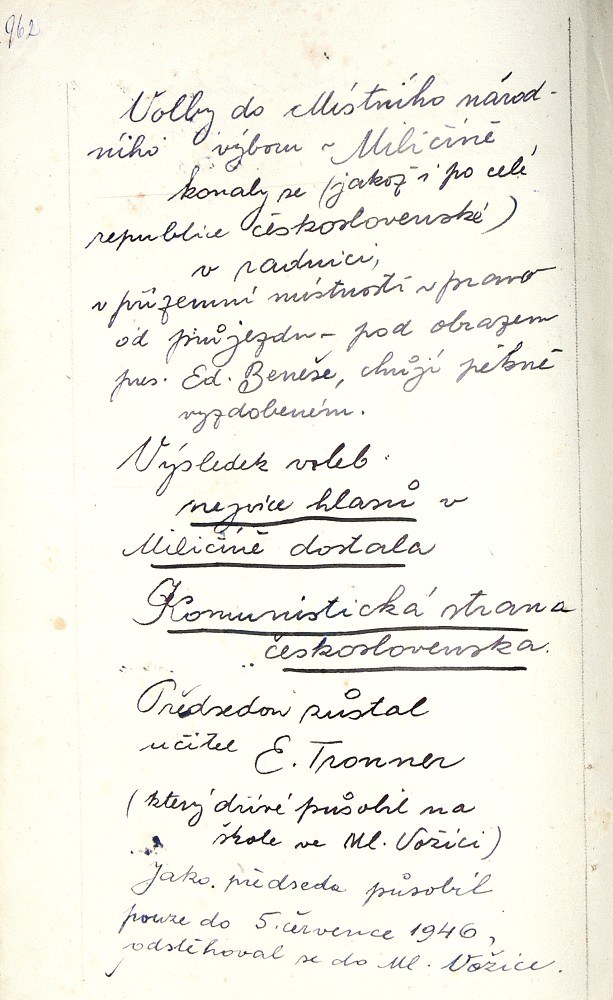 962
Volby do Místního národ-
ního výboru v Miličíně
konaly se (jakož i po celé
republice československé)
v radnici,
v přízemní místnosti vpravo
od průjezdu - pod obrazem
pres. Ed. Beneše, chvojí pěkně
vyzdobeném.
Výsledek voleb:
nejvíce hlasů v
Miličíně dostala
Komunistická strana
československa.
Předsedou zůstal
učitel E. Tronner
(který dříve působil na
škole ve Ml. Vožici)
Jako předseda působil
pouze do 5. července 1946,
odstěhoval se do Ml. Vožice.